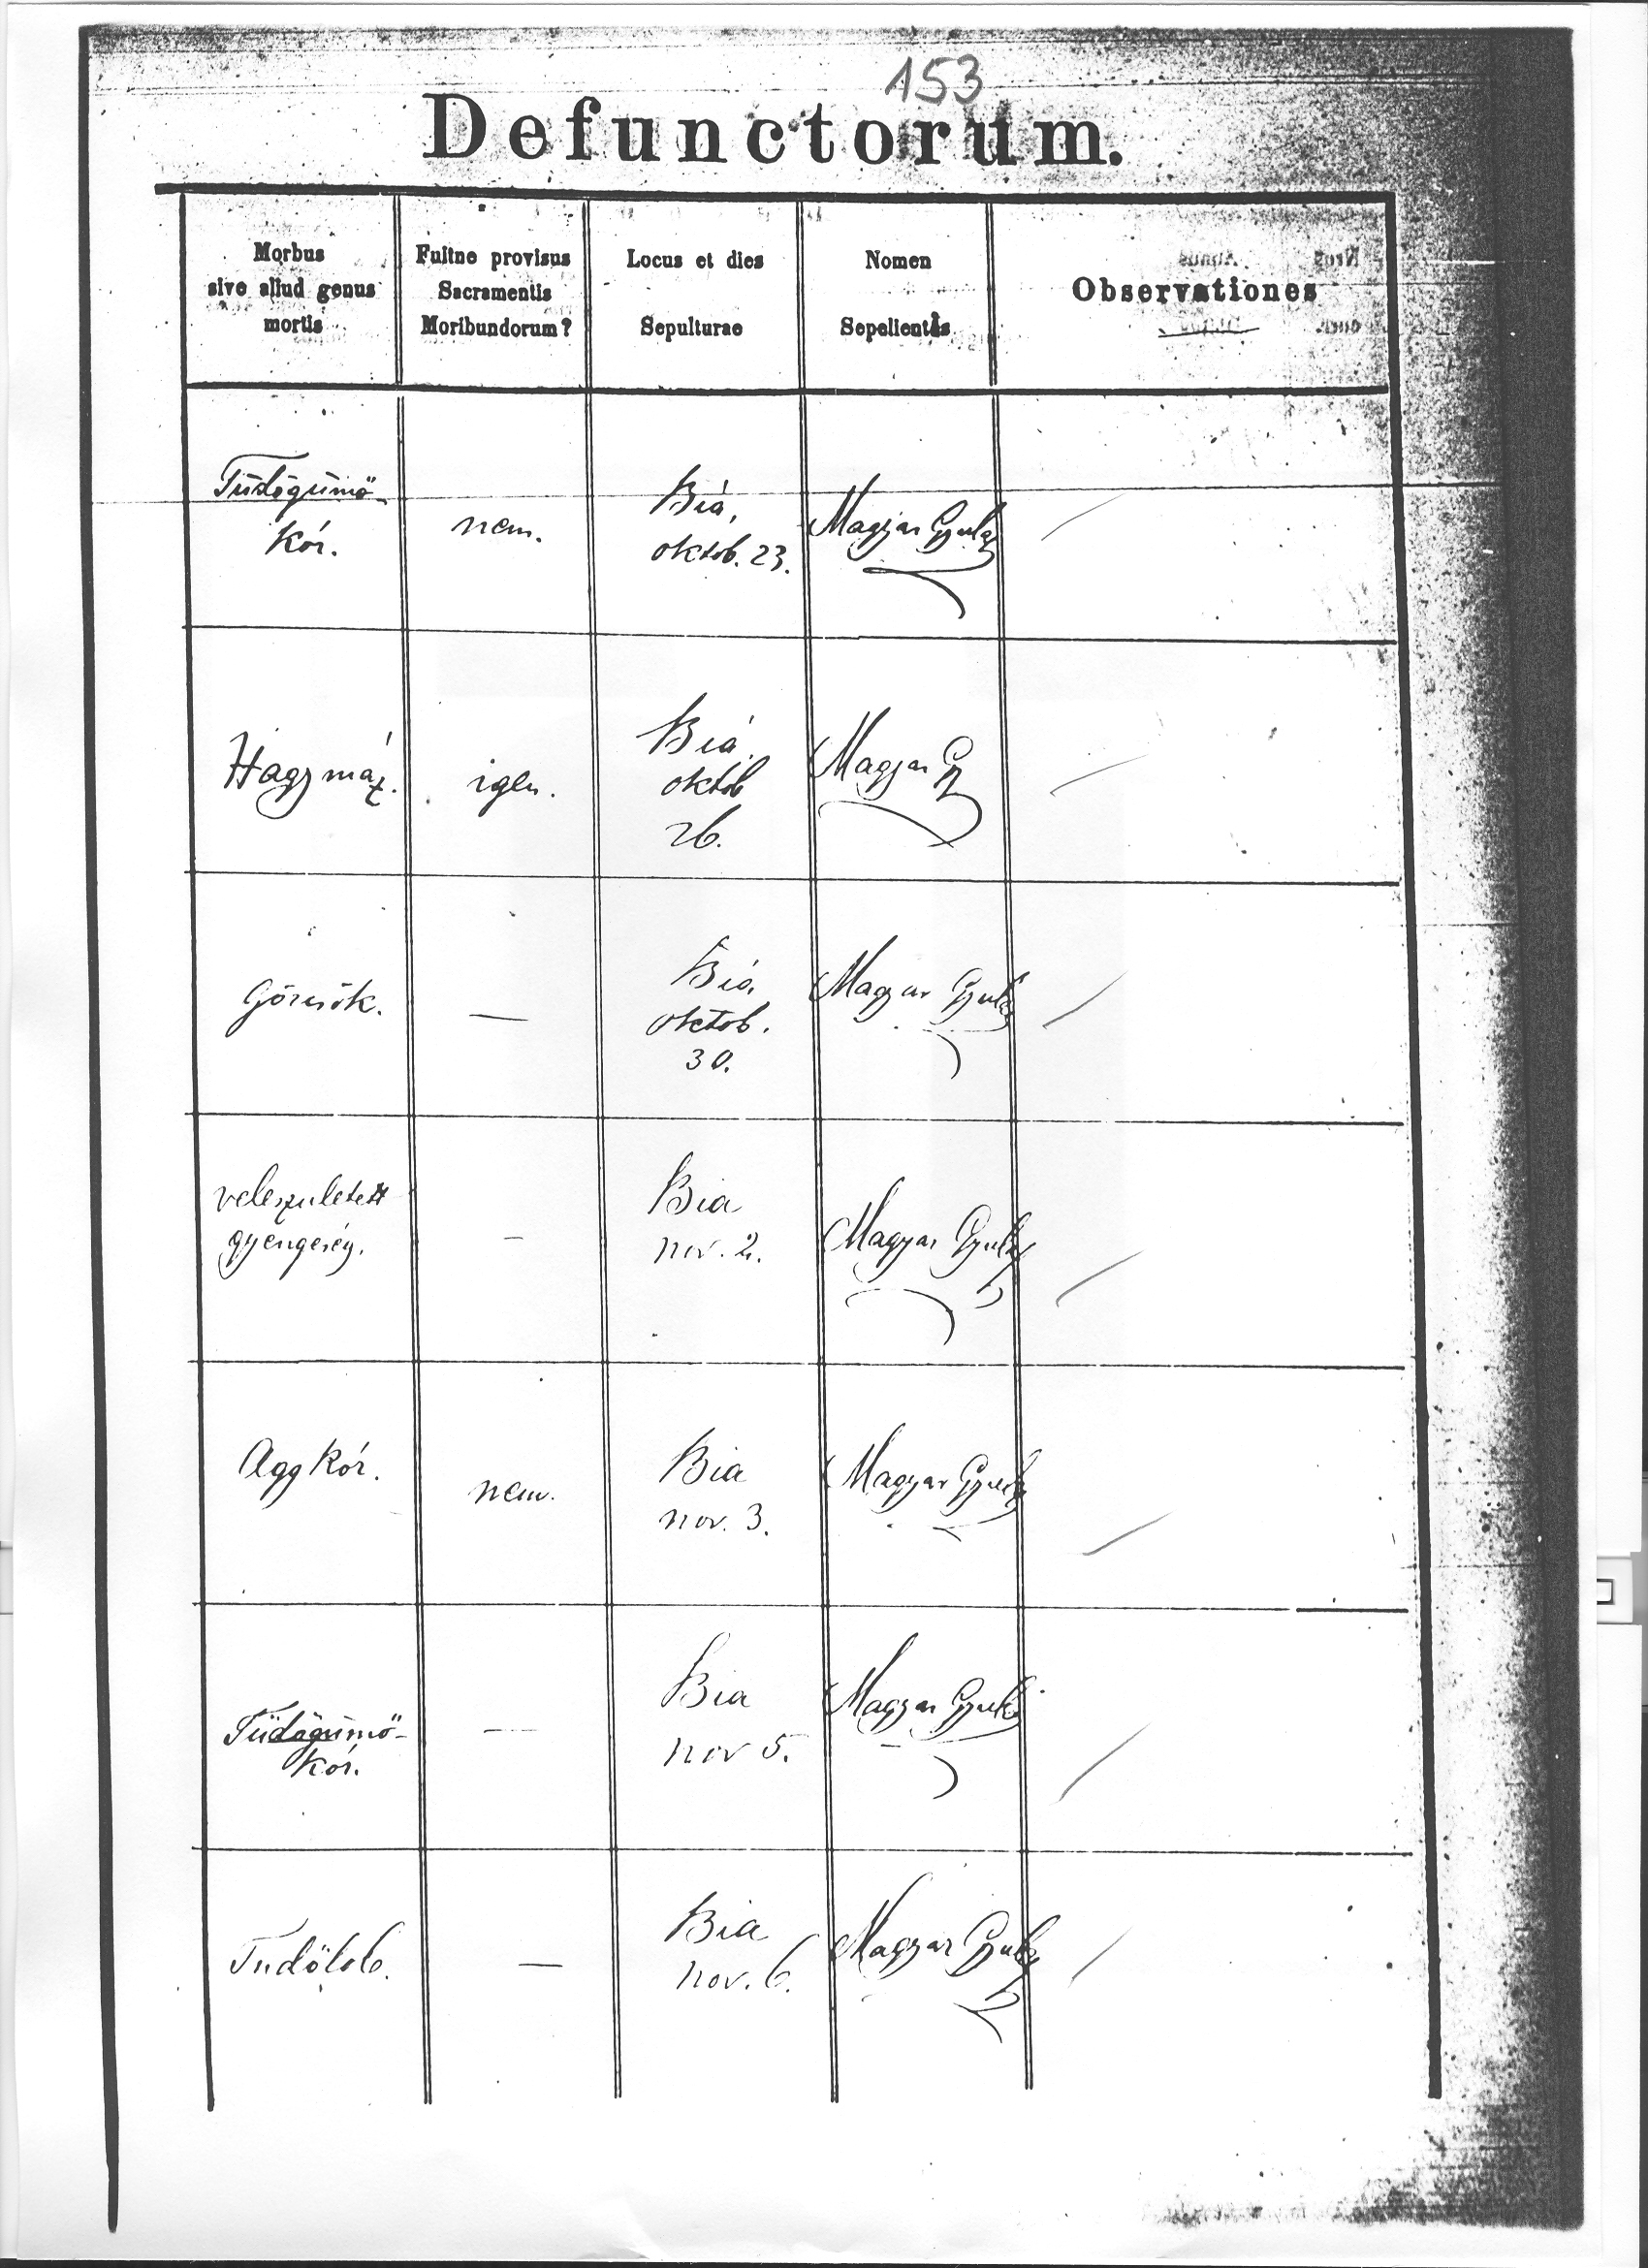 153
Defunctorum.
Morbus
sive aliud genus
mortis
Fuitne provisus
Sacramentis
Moribundorum?
Locus et dies
Sepulturae
Nomen
Sepelientis
Observationes
Tüdőgümő-
kór.
nem.
Bia,
oktob. 23.
Magyar Gyula
Hagymáz.
igen.
Bia,
oktob
26.
Magyar Gy
Görcsök.
—
Bia,
oktob.
30.
Magyar Gyula
veleszületett
gyengeség.
–
Bia
nov. 2.
Magyar Gyula
Aggkór.
nem.
Bia
nov. 3.
Magyar Gyula
Tüdőgümő-
kór.
—
Bia
nov 5.
Magyar Gyula
Tudőlob.
—
Bia
nov. 6.
Magyar Gyula